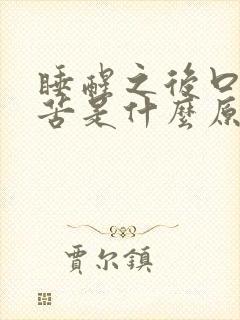 睡醒之後口
苦是什麼原
賈尔鎮